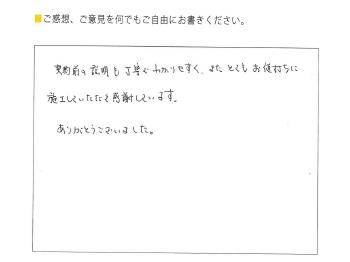 ■ご感想、ご意見を何でもご自由にお書きください。
契約前の説明も丁寧でわかりやすく、また とても お値打ちに
施工していただき感謝しています。
ありがとうございました。